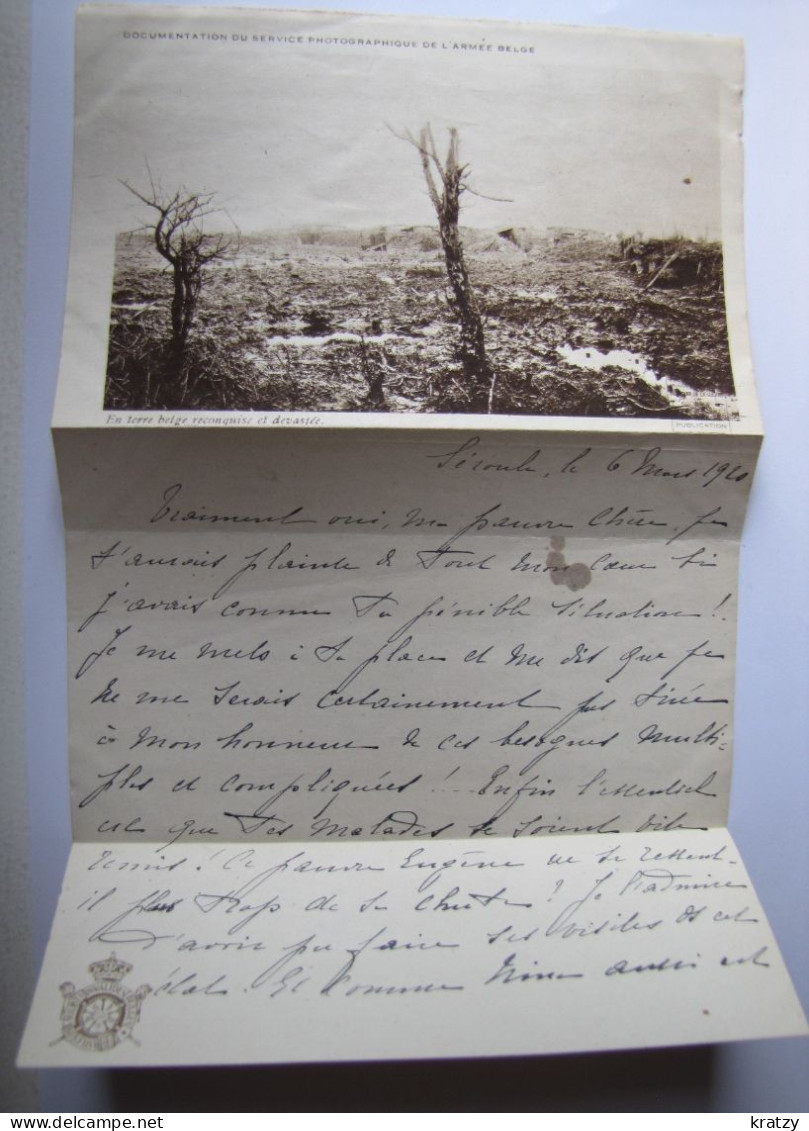 DOCUMENTATION DU SERVICE PHOTOGRAPHIQUE DE L'ARMÉE BELGE
En terre belge reconquise et devastée.
PUBLICATION
le 6 Mars 1920
Vraiment oui, ma pauvre Chère, je
t'aurais plainte de tout mon cœur si
j'avais connu ta pénible situation!
Je me mets à ta place et me dit que je
ne me serais certainement pas tirée
à mon honneur de ces besognes multi-
ples et compliquées! Enfin l'essentiel
est que tes malades se soient vite
remis! Ce pauvre Eugène ne se ressent-
il plus trop de sa chute? Je l'admire
d'avoir pu faire ses visites ds cet
état. Et comme aussi est
kratzy